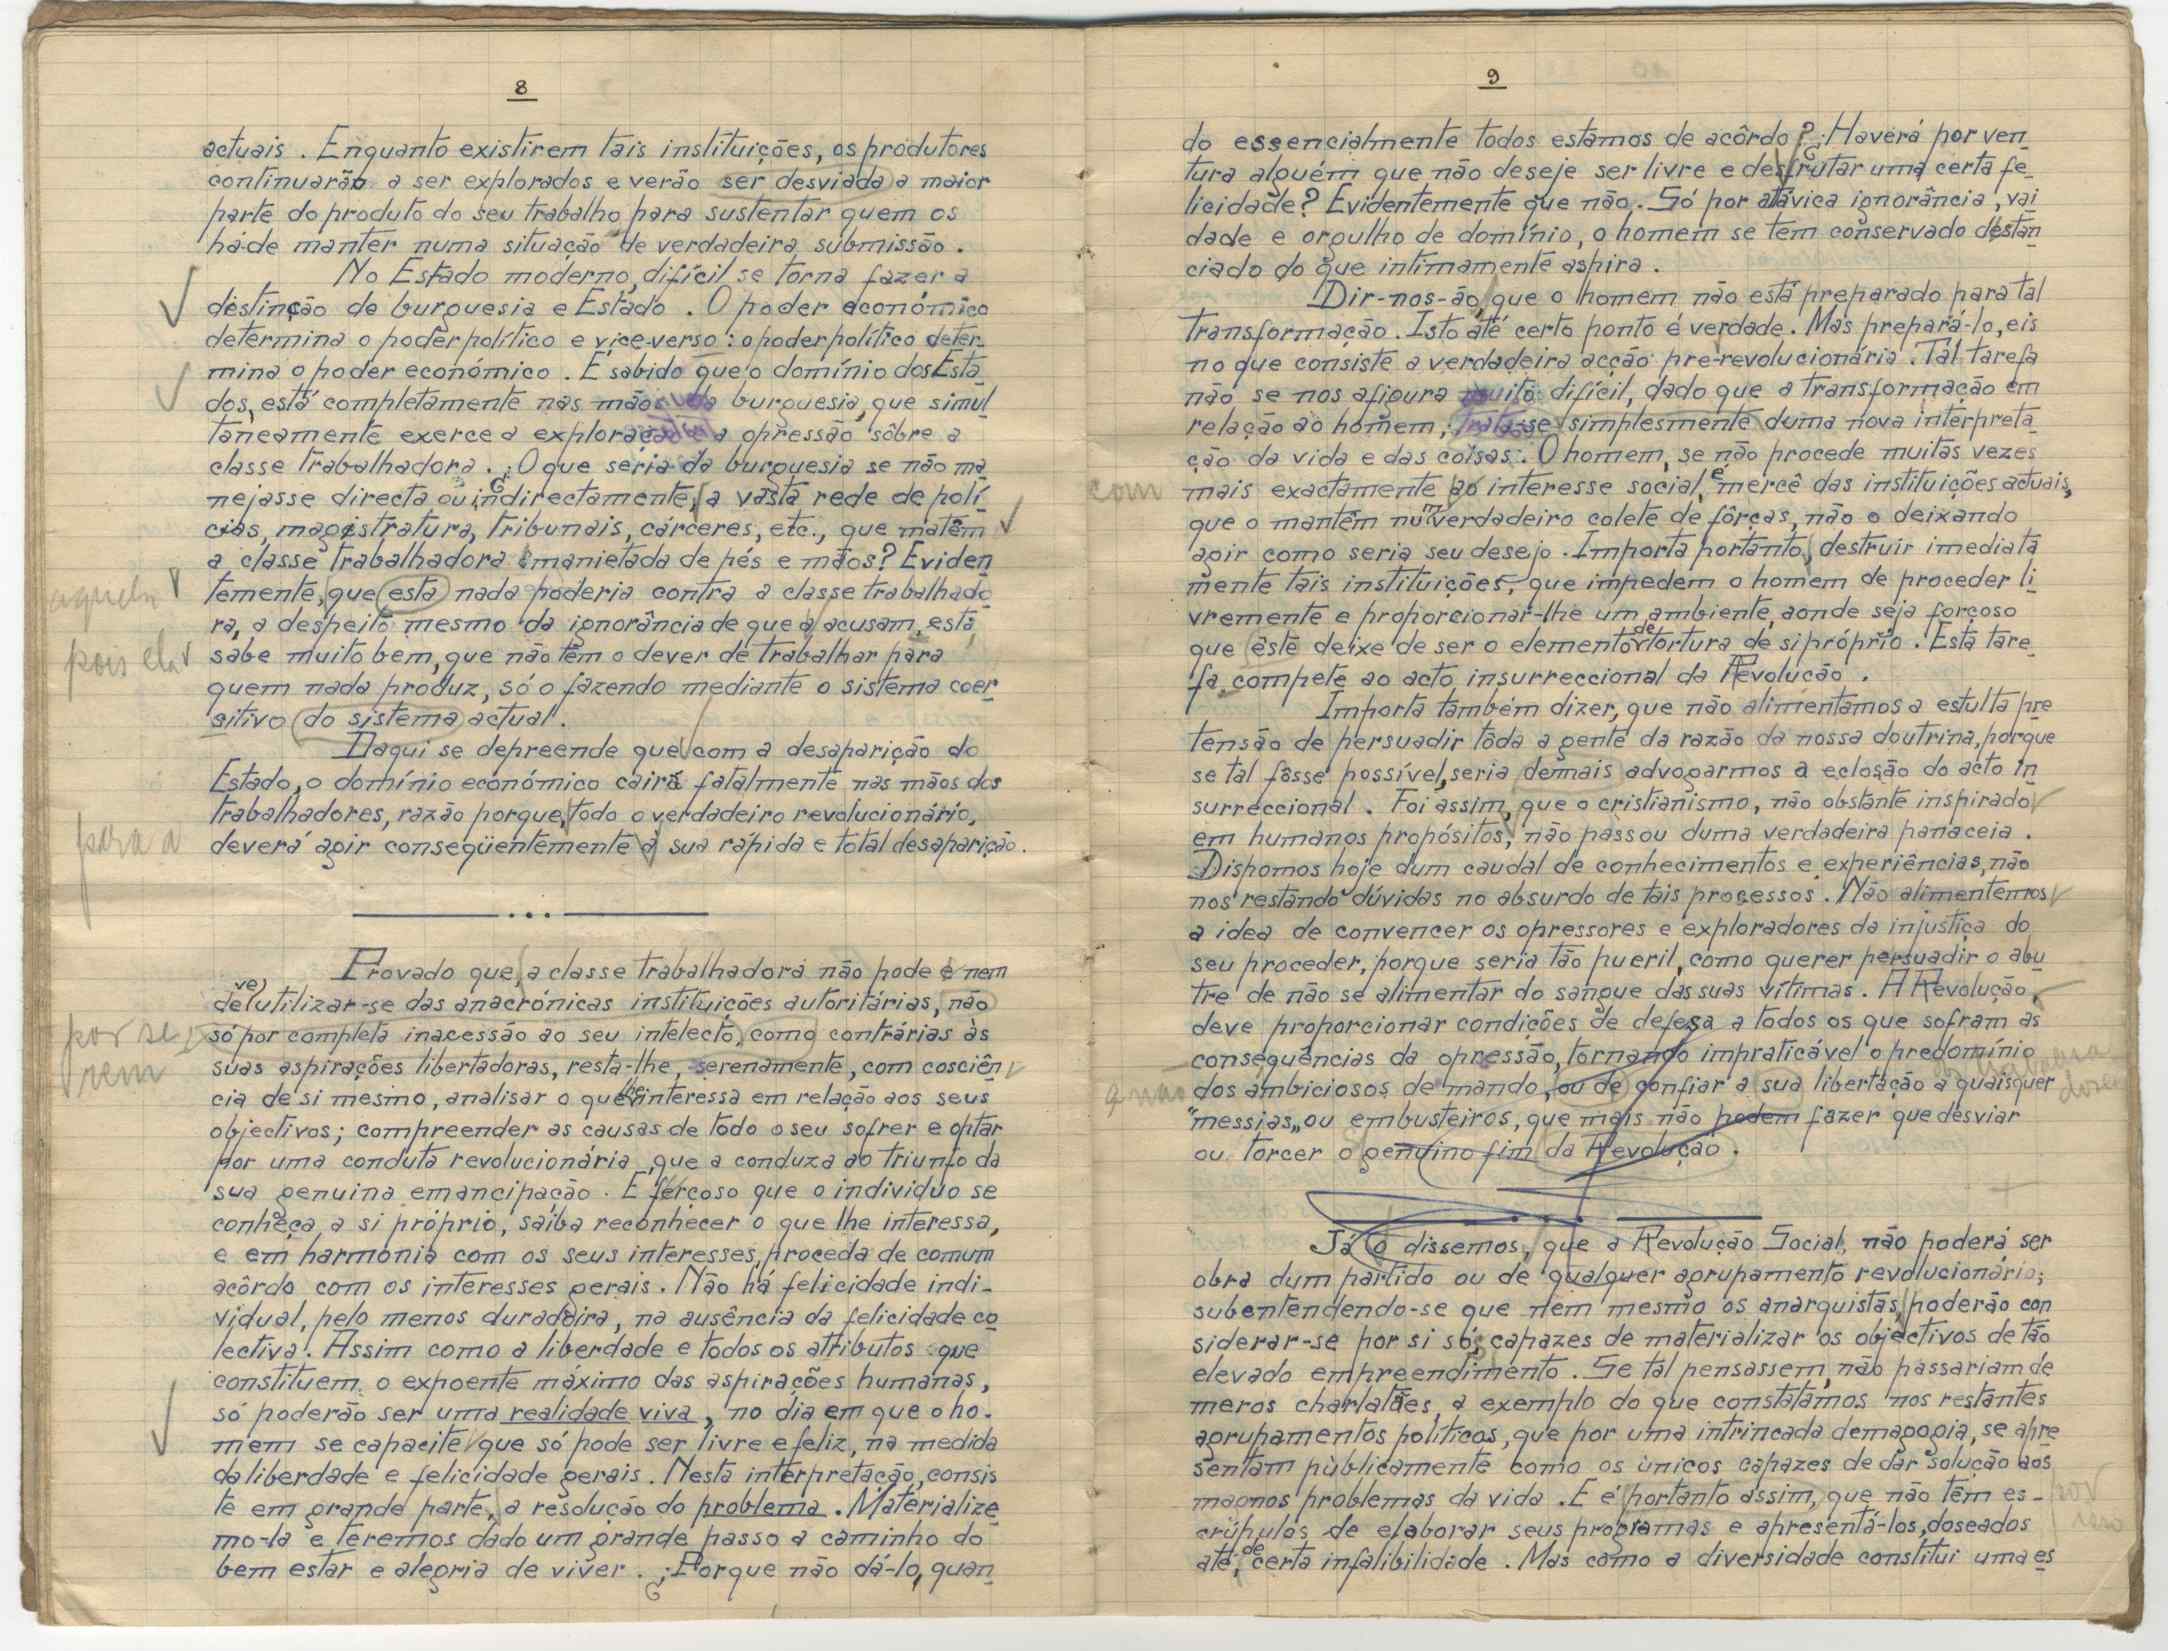 8
actuais. Enquanto existirem tais instituições, os produtores
continuarão a ser explorados e verão ser desviada a maior
parte do produto do seu trabalho para sustentar quem os
há-de manter numa situação de verdadeira submissão.
No Estado moderno, difícil se torna fazer a
destinção de burguesia e Estado. O poder económico
determina o poder político e vice-verso: o poder político deter-
mina o poder económico. É sabido que o domínio dos Esta
dos, está completamente nas mãos da burguesia, que simul
tâneamente exerce a exploração e a opressão sôbre a
classe trabalhadora. ¿O que seria da burguesia se não ma
nejasse directa ou indirectamente, a vasta rede de polí
cias, magistratura, tribunais, cárceres, etc., que matêm
a classe trabalhadora manietada de pés e mãos? Eviden
temente, que esta nada poderia contra a classe trabalhado
aquela
ra, a despeito mesmo da ignorância de que a acusam, esta
pois ela
sabe muito bem, que não têm o dever de trabalhar para
quem nada produz, só o fazendo mediante o sistema coer
sitivo do sistema actual.
Daqui se depreende que com a desaparição do
Estado, o domínio económico cairá fatalmente nas mãos dos
trabalhadores, razão porque, todo o verdadeiro revolucionário,
para a
deverá agir conseqüentemente à sua rápida e total desaparição.
Provado que, a classe trabalhadora não pode e nem
deve utilizar-se das anacrónicas instituições autoritárias, não
só por completa inacessão ao seu intelecto, como contrárias às
por se
rem
suas aspirações libertadoras, resta-lhe, serenamente, com cosciên
cia de si mesmo, analisar o que lhe interessa em relação aos seus
objectivos; compreender as causas de todo o seu sofrer e optar
por uma conduta revolucionária, que a conduza ao triunfo da
sua genuina emancipação. É forçoso que o individuo se
conheça a si próprio, saiba reconhecer o que lhe interessa,
e em harmonia com os seus interesses, proceda de comum
acôrdo com os interesses gerais. Não há felicidade indi-
vidual, pelo menos duradoira, na ausência da felicidade co
lectiva. Assim como a liberdade e todos os atributos que
constituem o expoente máximo das aspirações humanas,
só poderão ser uma realidade viva, no dia em que o ho-
mem se capacite que só pode ser livre e feliz, na medida
da liberdade e felicidade gerais. Nesta interpretação, consis
te em grande parte, a resolução do problema. Materialize
mo-la e teremos dado um grande passo a caminho do
bem estar e alegria de viver. ¿Porque não dá-lo, quan
9
do essencialmente todos estamos de acôrdo? ¿Haverá por ven
tura alguém que não deseje ser livre e desfrutar uma certa fe
licidade? Evidentemente que não. Só por atávica ignorância, vai
dade e orgulho de domínio, o homem se tem conservado destan
ciado do que intimamente aspira.
Dir-nos-ão, que o homem não está preparado para tal
transformação. Isto até certo ponto é verdade. Mas prepará-lo, eis
no que consiste a verdadeira acção pre-revolucionária. Tal tarefa
não se nos afigura muito difícil, dado que a transformação em
relação ao homem, trata-se simplesmente duma nova interpreta
ção da vida e das coisas. O homem, se não procede muitas vezes
com
mais exactamente ao interesse social, é mercê das instituições actuais,
que o mantêm num verdadeiro colete de fôrças, não o deixando
agir como seria seu desejo. Importa portanto, destruir imediata
mente tais instituições, que impedem o homem de proceder li
vremente e proporcionar-lhe um ambiente, aonde seja forçoso
que êste deixe de ser o elemento de tortura de si próprio. Esta tare
fa compete ao acto insurreccional da Revolução.
Importa também dizer, que não alimentamos a estulta pre
tensão de persuadir tôda a gente da razão da nossa doutrina, porque
se tal fôsse possível, seria demais advogarmos a eclosão do acto in
surreccional. Foi assim, que o cristianismo, não obstante inspirado
em humanos propósitos, não passou duma verdadeira panaceia.
Dispomos hoje dum caudal de conhecimentos e experiências, não
nos restando dúvidas no absurdo de tais processos. Não alimentemos
a idea de convencer os opressores e exploradores da injustiça do
seu proceder, porque seria tão pueril, como querer persuadir o abu
tre de não se alimentar do sangue das suas vítimas. A Revolução,
deve proporcionar condições de defesa a todos os que sofram as
conseqüências da opressão, tornando impraticável o predomínio
dos ambiciosos de mando, ou de confiar a sua libertação a quaisquer
q não
"messias„ ou embusteiros, que mais não podem fazer que desviar
ou torcer o genuino fim da Revolução.
Já o dissemos, que a Revolução Social, não poderá ser
obra dum partido ou de qualquer agrupamento revolucionário;
subentendendo-se que nem mesmo os anarquistas, poderão con
siderar-se por si só, capazes de materializar os objectivos de tão
elevado empreendimento. Se tal pensassem, não passariam de
meros charlatães, a exemplo do que constatámos nos restantes
agrupamentos políticos, que por uma intrincada demagogia, se apre
sentam pùblicamente como os ùnicos capazes de dar solução aos
magnos problemas da vida. E é portanto assim, que não têm es-
crúpulos de elaborar seus programas e apresentá-los, doseados
até, de certa infalibilidade. Mas como a diversidade constitui uma es